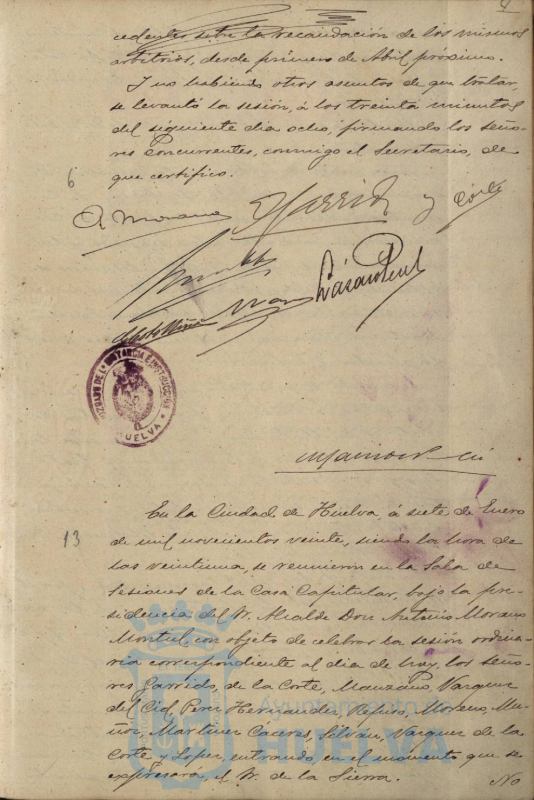 4
cedentes sobre la recaudación de los mismos
arbitrios, desde primero de Abril próximo.
Y no habiendo otros asuntos de que tratar,
se levantó la sesión, á los treinta minutos
del siguiente dia ocho, firmando los seño-
res Concurrentes, conmigo el Secretario, de
que certifico.
6
A Moreno Garrido y Corte
JUZGADO DE 1ª INSTANCIA É INSTRUCCION
HUELVA
En la Ciudad de Huelva, á siete de Enero
13
de mil novecientos veinte, siendo la hora de
las veintiuna, se reunieron en la Sala de
Sesiones de la Casa Capitular, bajo la pre-
sidencia del Sr. Alcalde Don Antonio Moreno
con objeto de celebrar la sesión ordina-
ria correspondiente al dia de hoy, los seño-
res Garrido, de la Corte, Manzano, Vazquez
del Cid, Perez Hernandez, Moreno, Mu-
ñoz, Martinez Caceres, Silván, Vazquez de la
Corte y Lopez, entrando, en el momento que se
expresará, el Sr. de la Sierra.
No
Ayuntamiento de
HUELVA